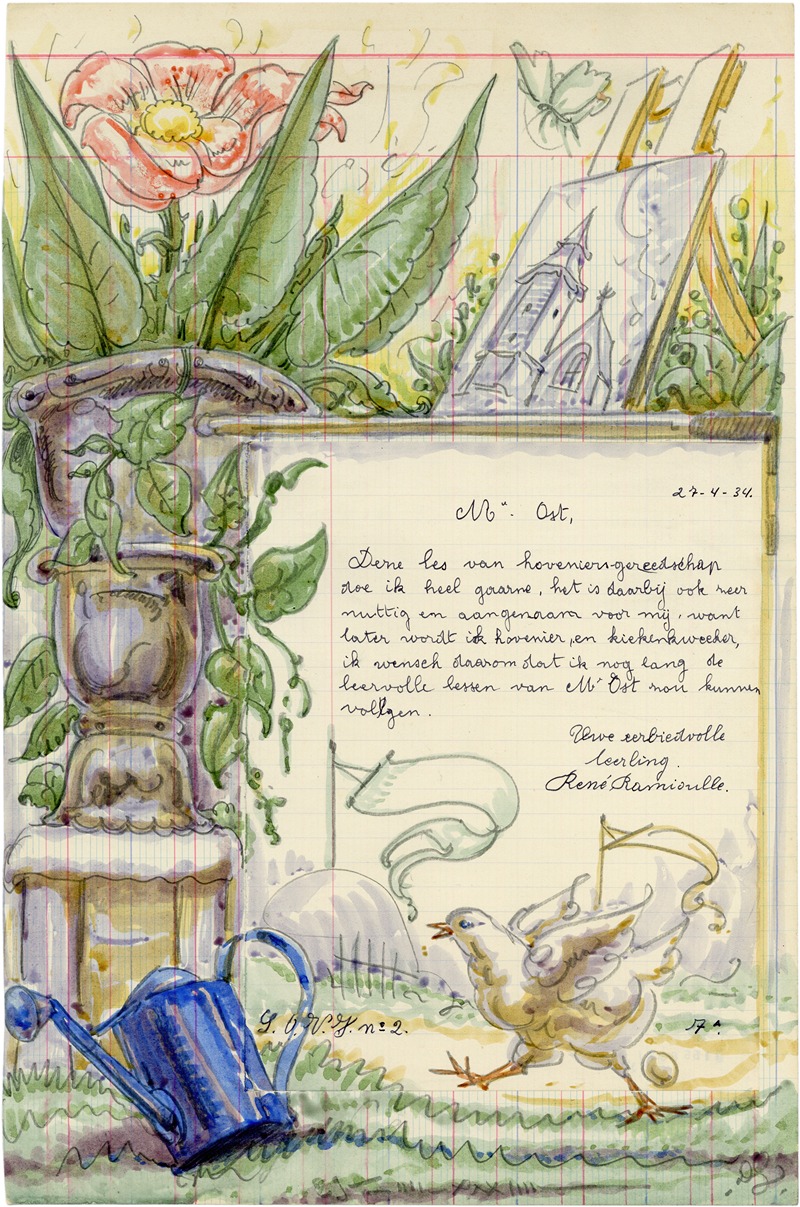 27-4-34.
Mr. Ost,
Deze les van hoveniers-gereedschap
doe ik heel gaarne, het is daarbij ook zeer
nuttig en aangenaam voor mij, want
later wordt ik hovenier, en kiekenkweeker,
ik wensch daarom dat ik nog lang de
leervolle lessen van Mr Ost zou kunnen
volgen.
Uwe eerbiedvolle
leerling.
René Ramioulle.
G. O. V. J. no 2.
7 A.